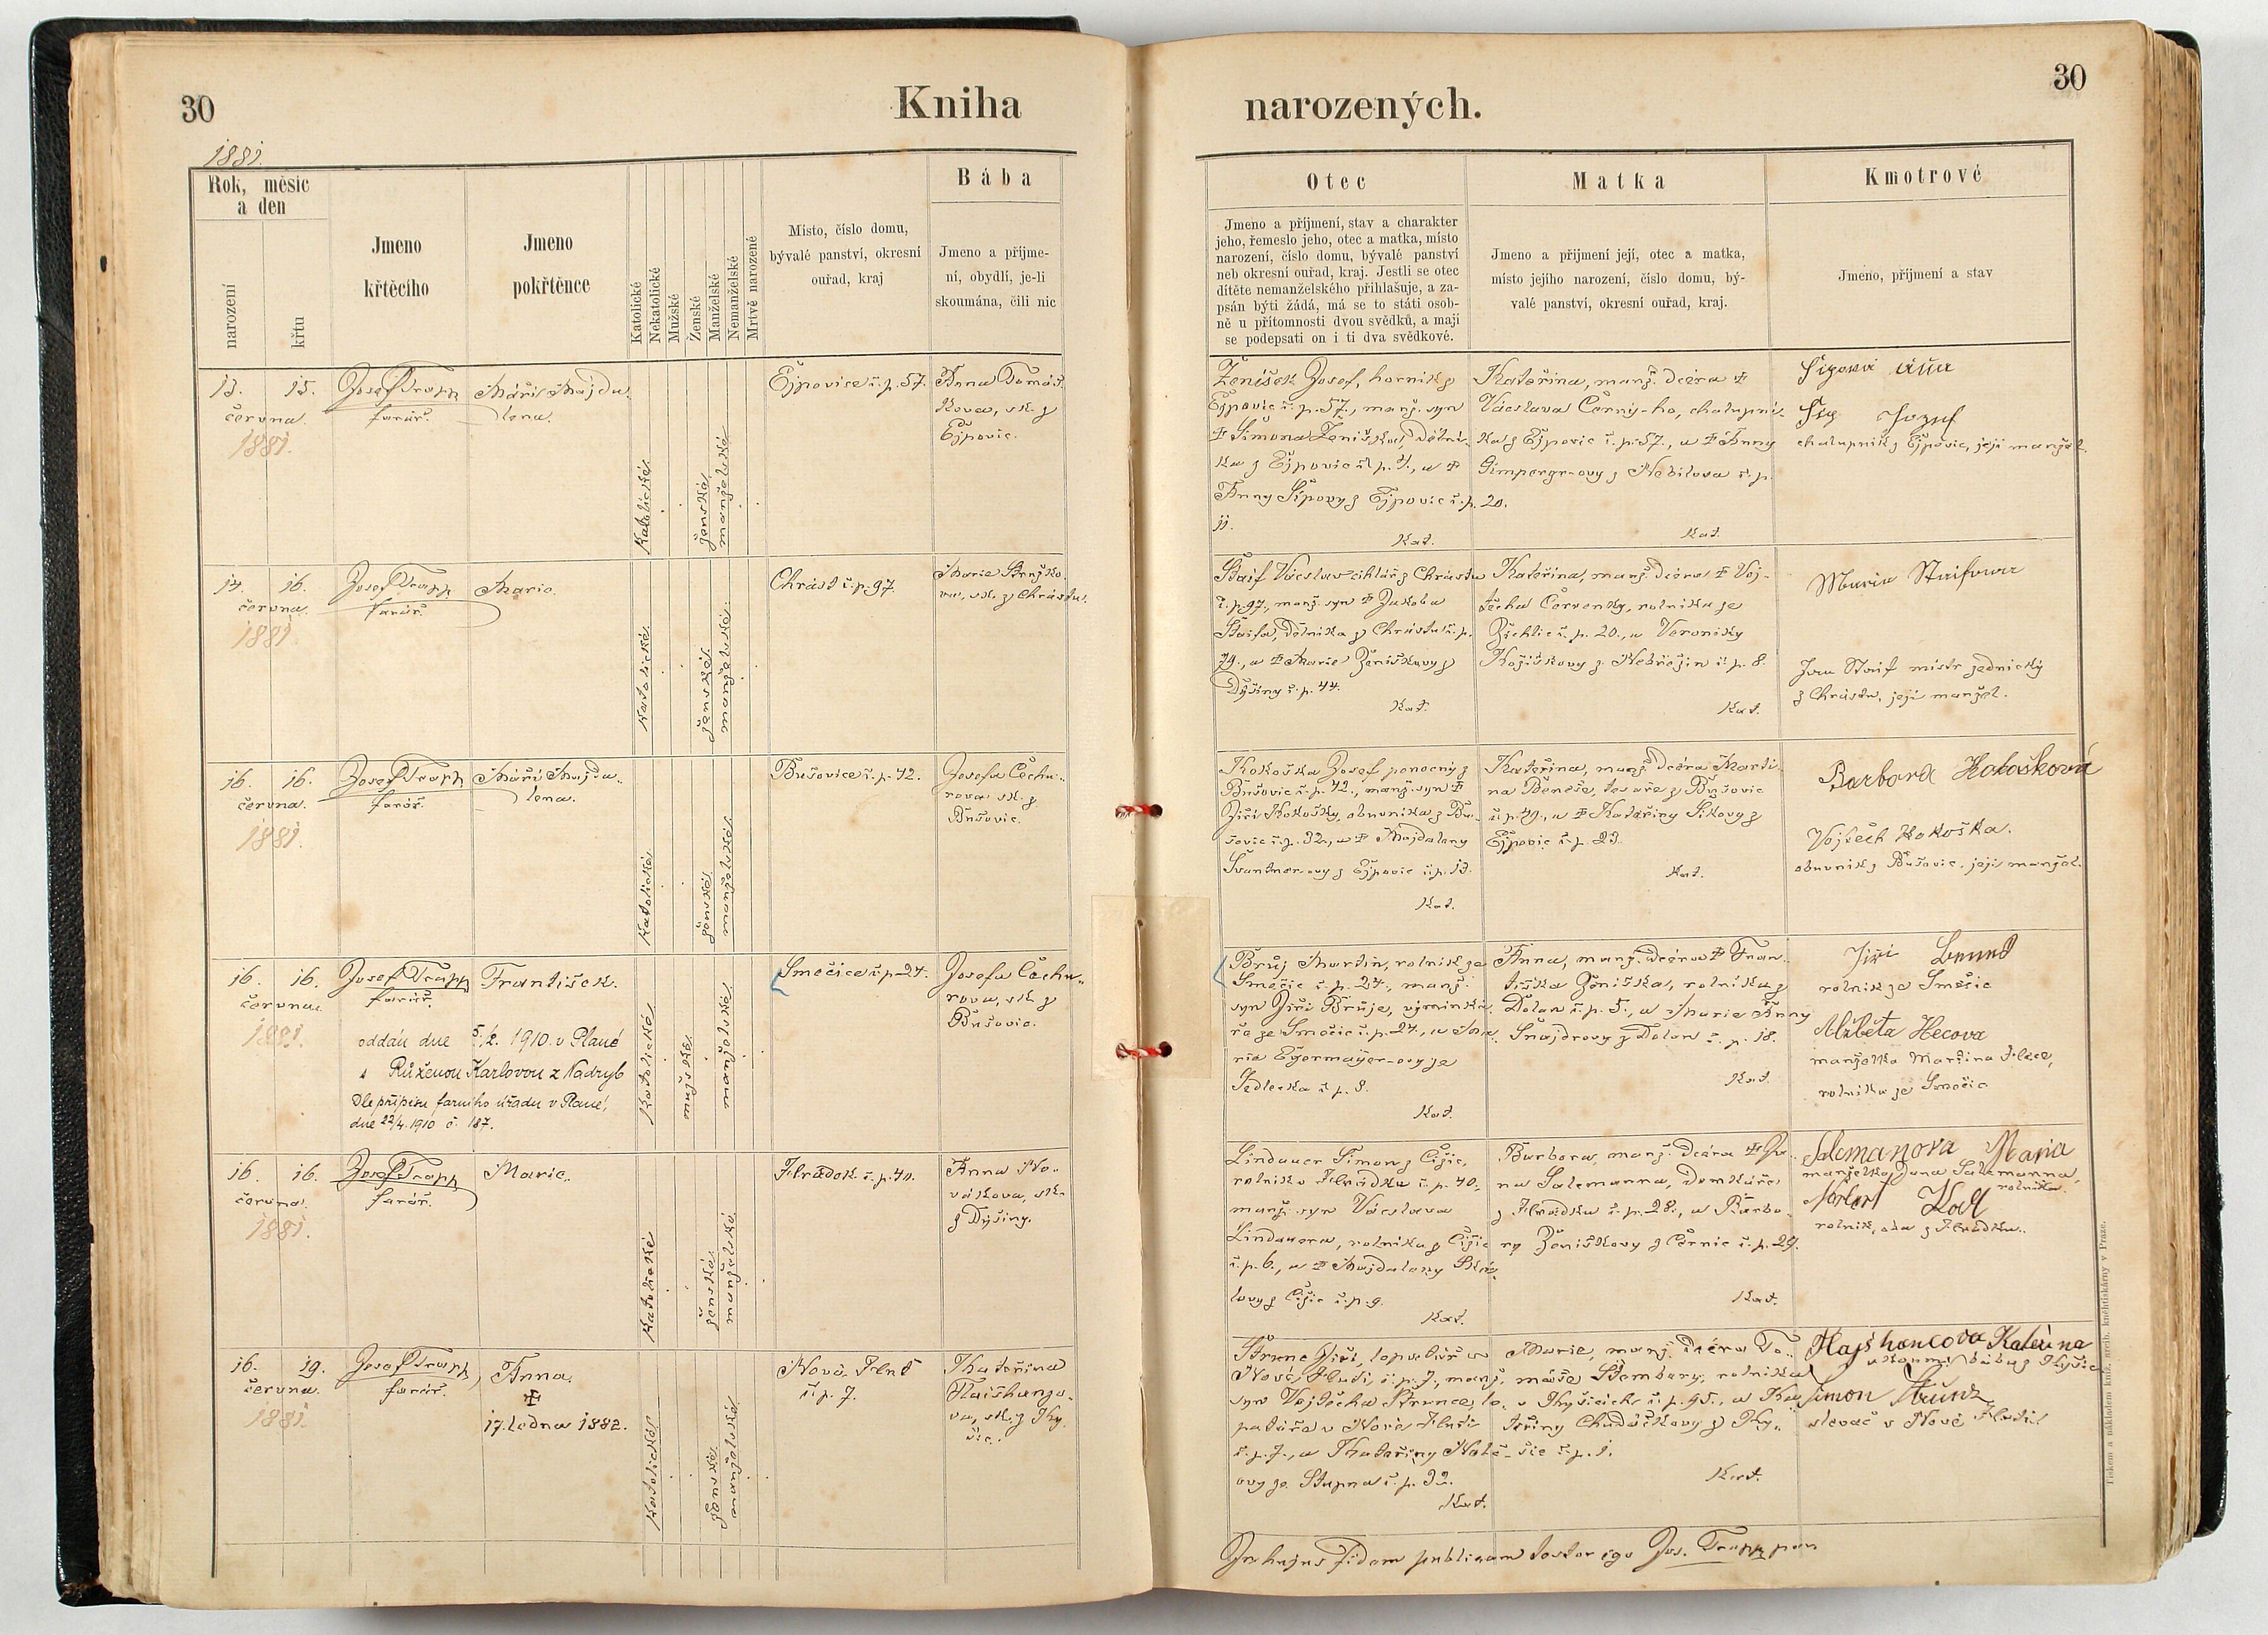 30
Kniha
narozených.
30
1881.
Rok, měsíc
a den
narození
křtu
Jmeno
křtěcího
Jmeno
pokřtěnce
Katolické
Nekatolické
Mužské
Ženské
Manželské
Nemanželské
Mrtvě narozené
Místo, číslo domu,
bývalé panství, okresní
ouřad, kraj
Bába
Jmeno a příjme-
ní, obydlí, je-li
skoumána, čili nic
Otec
Jmeno a příjmení, stav a charakter
jeho, řemeslo jeho, otec a matka, místo
narození, číslo domu, bývalé panství
neb okresní ouřad, kraj. Jestli se otec
dítěte nemanželského přihlašuje, a za-
psán býti žádá, má se to státi osob-
ně u přítomnosti dvou svědků, a mají
se podepsati on i ti dva svědkové.
Matka
Jmeno a přijmení její, otec a matka,
místo jejího narození, číslo domu, bý-
valé panství, okresní ouřad, kraj.
Kmotrové
Jmeno, příjmení a stav
13. 15.
června.
1881.
Josef Trapp
farář.
Máří Majda-
lena.
Katolické.
ženské.
manželské.
Ejpovice č. p. 57.
Anna Tomáš-
kova, zk. z
Ejpovic.
Ženíšek Josef, horník z
Ejpovic č. p. 57., manž. syn
Šimona Ženíška, dělní-
ka z Ejpovic č. p. 4., a
Anny Šípovy z Ejpovic č. p.
11.
Kat.
Kateřina, manž. dcera
Václava Černý-ho, chalupní-
ka z Ejpovic č. p. 57., a Anny
z Nebílova č. p.
20.
Kat.
chalupník z Ejpovic, její manžel.
14. 16.
června.
1881.
Josef Trapp
farář.
Marie.
Katolické.
ženské.
manželské.
Chrást č. p. 97.
Marie
zk. z Chrástu.
Štaif Václav cihlář z Chrástu
č. p. 97., manž. syn Jakoba
Štaifa, dělníka z Chrástu č. p.
79., a Marie Ženíškovy z
Dýšiny č. p. 44.
Kat.
Kateřina, manž. dcera Voj-
těcha Červenky, rolníka ze
č. p. 20., a Veroniky
Kožíškovy z Nebřezin č. p. 8.
Kat.
Maria Staifowa
Jan Staif mistr zednický
z Chrástu, její manžel.
16. 16.
června.
1881.
Josef Trapp
farář.
Máří Majda-
lena.
Katolické.
ženské.
manželské.
Bušovice č. p. 42.
Josefa Čecha-
rova zk. z
Bušovic.
Kokoška Josef ponocný z
Bušovic č. p. 42., manž. syn
Jiří Kokošky, obuvníka z Bu-
šovic č. p. 32., a Majdaleny
Švantner-ovy z Ejpovic č. p. 13.
Kat.
Kateřina, manž. dcera Marti-
na Beneše, tesaře z Bušovic
č. p. 49., a Kateřiny Síkovy z
Ejpovic č. p. 23.
Kat.
Barbora Kokošková
Vojtěch Kokoška.
obuvník z Bušovic, její manžel.
16. 16.
června.
1881.
Josef Trapp
farář.
František.
oddán dne 5./2. 1910. v Plané
s Růženou Karlovou z Nadryb
Dle přípisu farního úřadu v Plané,
dne 22/4. 1910 č. 187.
Katolické
mužské.
manželské
Smečice č. p. 24.
Josefa Čecha-
rova, zk. z
Bušovic.
Brůj Martin, rolník ze
Smečic č. p. 24., manž.
syn Jiří Brůje, výminká-
ře ze Smečic č. p. 24., a Ma-
rie Egermayer-ovy ze
Sedlecka č. p. 8.
Kat.
Anna, manž. dcera Fran-
tiška Ženíška, rolníka z
Dolan č. p. 5., a Marie Anny
Šnajdrovy z Dolan č. p. 18.
Kat.
Jiří
rolník ze Smečic
Alžběta Hecova
manželka Martina Hece,
rolníka ze Smečic
16. 16.
června.
1881.
Josef Trapp
farář.
Marie.
Katolické
ženské.
manželské.
Hrádek č. p. 40.
Anna No-
vákova, zk.
z Dýšiny.
Lindauer Šimon z Čižic,
rolník v Hrádku č. p. 40.,
manž. syn Václava
Lindauera, rolníka z Čižic
č. p. 6., a Majdaleny
z Čižic č. p. 9.
Kat.
Barbora, manž. dcera Ja-
na Salcmanna, domkáře
z Hrádku č. p. 28., a Barbo-
ry Ženíškovy z Černic č. p. 29.
Kat.
Salcmanova Maria
manželka Jana Salcmanna,
rolníka.
Norbert
rolník, z Hrádku.
16. 19.
června.
1881.
Josef Trapp
farář.
Anna.
17. ledna 1882.
Katolické.
ženské.
manželské.
Nová Huť
č. p. 7.
Kateřina
zk. z Ky-
šic.
Štrunc Jiří, lopatář v
Nové Huti, č. p. 7., manž.
syn Vojtěcha Štrunce, lo-
patáře v Nové Huti
č. p. 7., a Kateřiny
ovy ze Stupna č. p. 32.
Kat.
Marie, manž. dcera To-
máše Štembery, rolníka
v Kyšicích č. p. 45., a Ka-
teřiny Chudáčkovy z Ky-
šic č. p. 1.
Kat.
Kateřina
zkoum. bába z Kyšic
Šimon Štrunz
slevač v Nové Huti.
In hujus fidem publicam testor ego Jos. Trapp
Tiskem a nákladem kníž. arcib. knihtiskárny v Praze.